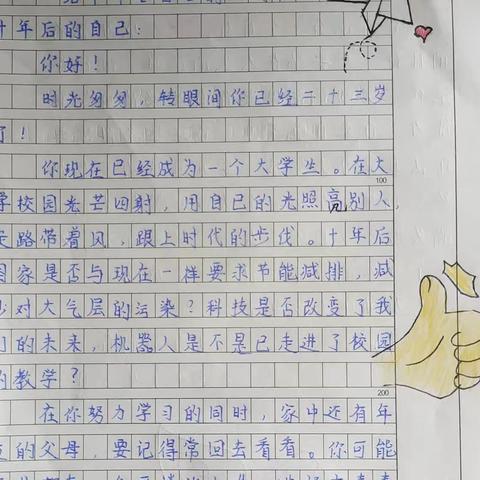 十年后的自己：
你好！
时光匆匆，转眼间你已经二十三岁
了！
你现在已经成为一个大学生。在大
学校园光芒四射，用自己的光照亮别人，
走路带着风，跟上时代的步伐。十年后
国家是否与现在一样要求节能减排，减
少对大气层的污染？科技是否改变了我
们的未来，机器人是不是已走进了校园
的教学？
在你努力学习的同时，家中还有年
的父母，要记得常回去看看。你可能
100
200